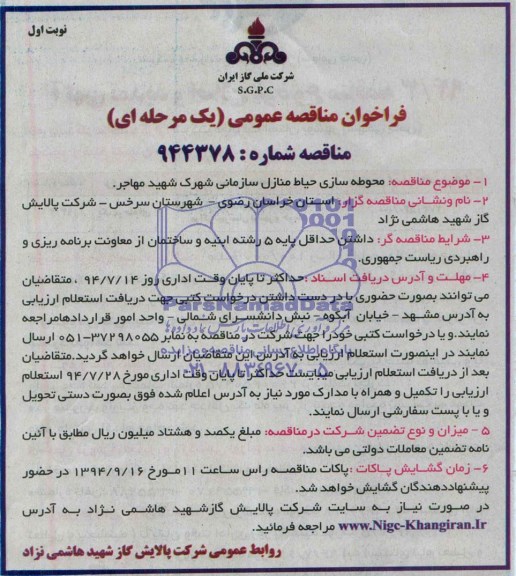 نوبت اول
شرکت ملی گاز ایران
S.G.P.C
فراخوان مناقصه عمومی (یک مرحله ای)
مناقصه شماره: ۹۴۴۳۷۸
۱- موضوع مناقصه: محوطه سازی حیاط منازل سازمانی شهرک شهید مهاجر.
۲- نام ونشانی مناقصه گزار: استان خراسان رضوی - شهرستان سرخس - شرکت پالایش
گاز شهید هاشمی نژاد
۳- شرایط مناقصه گر: داشتن حداقل پایه ۵ رشته ابنیه و ساختمان از معاونت برنامه ریزی و
راهبردی ریاست جمهوری.
۴- مهلت و آدرس دریافت اسناد :حداکثر تا پایان وقت اداری روز ۹۴/۷/۱۴ ، متقاضیان
می توانند بصورت حضوری با در دست داشتن درخواست کتبی جهت دریافت استعلام ارزیابی
به آدرس مشهد - خیابان آبکوه - نبش دانشسرای شمالی - واحد امور قراردادهامراجعه
نمایند.و یا درخواست کتبی خودرا جهت شرکت در مناقصه به نمابر ۳۷۲۹۸۰۵۵-۰۵۱ ارسال
نمایند در اینصورت استعلام ارزیابی به آدرس این متقاضیان ارسال خواهد گردید.متقاضیان
بعد از دریافت استعلام ارزیابی میبایست حداکثر تا پایان وقت اداری مورخ ۹۴/۷/۲۸ استعلام
ارزیابی را تکمیل و همراه با مدارک مورد نیاز به آدرس اعلام شده فوق بصورت دستی تحویل
و یا با پست سفارشی ارسال نمایند.
۵ - میزان و نوع تضمین شرکت درمناقصه: مبلغ یکصد و هشتاد میلیون ریال مطابق با آئین
نامه تضمین معاملات دولتی می باشد.
۶- زمان گشایش پاکات :پاکات مناقصه راس ساعت ۱۱ مورخ ۱۳۹۴/۹/۱۶ در حضور
پیشنهاددهندگان گشایش خواهد شد.
در صورت نیاز به سایت شرکت پالایش گازشهید هاشمی نژاد به آدرس
www.Nigc-Khangiran.Ir مراجعه فرمائید.
روابط عمومی شرکت پالایش گاز شهید هاشمی نژاد
ParsNamadData
۰۲۱-۸۸۳۴۹۶۷۰-۵